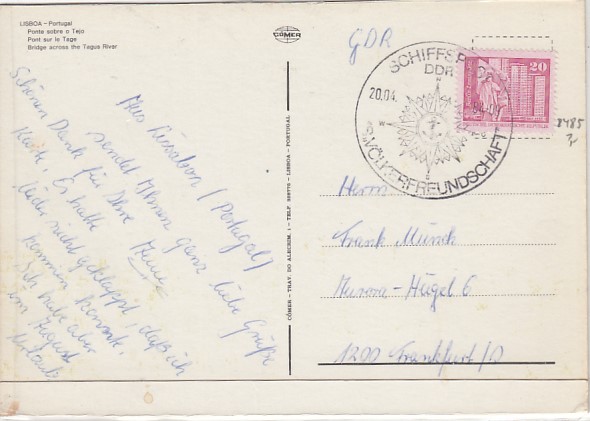 LISBOA – Portugal
Ponte sobre o Tejo
Pont sur le Tage
Bridge across the Tagus River
CÓMER
GDR
SCHIFFSPOST
DDR
20.04.
-04-00
VÖLKERFREUNDSCHAFT
20
8485
CÓMER – TRAV. DO ALECRIM, 1 – TELF. – LISBOA – PORTUGAL
Aus Lissabon (Portugal)
sendet Ihnen ganz liebe Grüße
Heine
Schönen Dank für Ihre
Karte. Es hatte
leider nicht geklappt, daß ich
kommen konnte.
Ich habe aber
im August
Urlaub
Herrn
Frank Münch
Aurora-Hügel 6
1200 Frankfurt/O